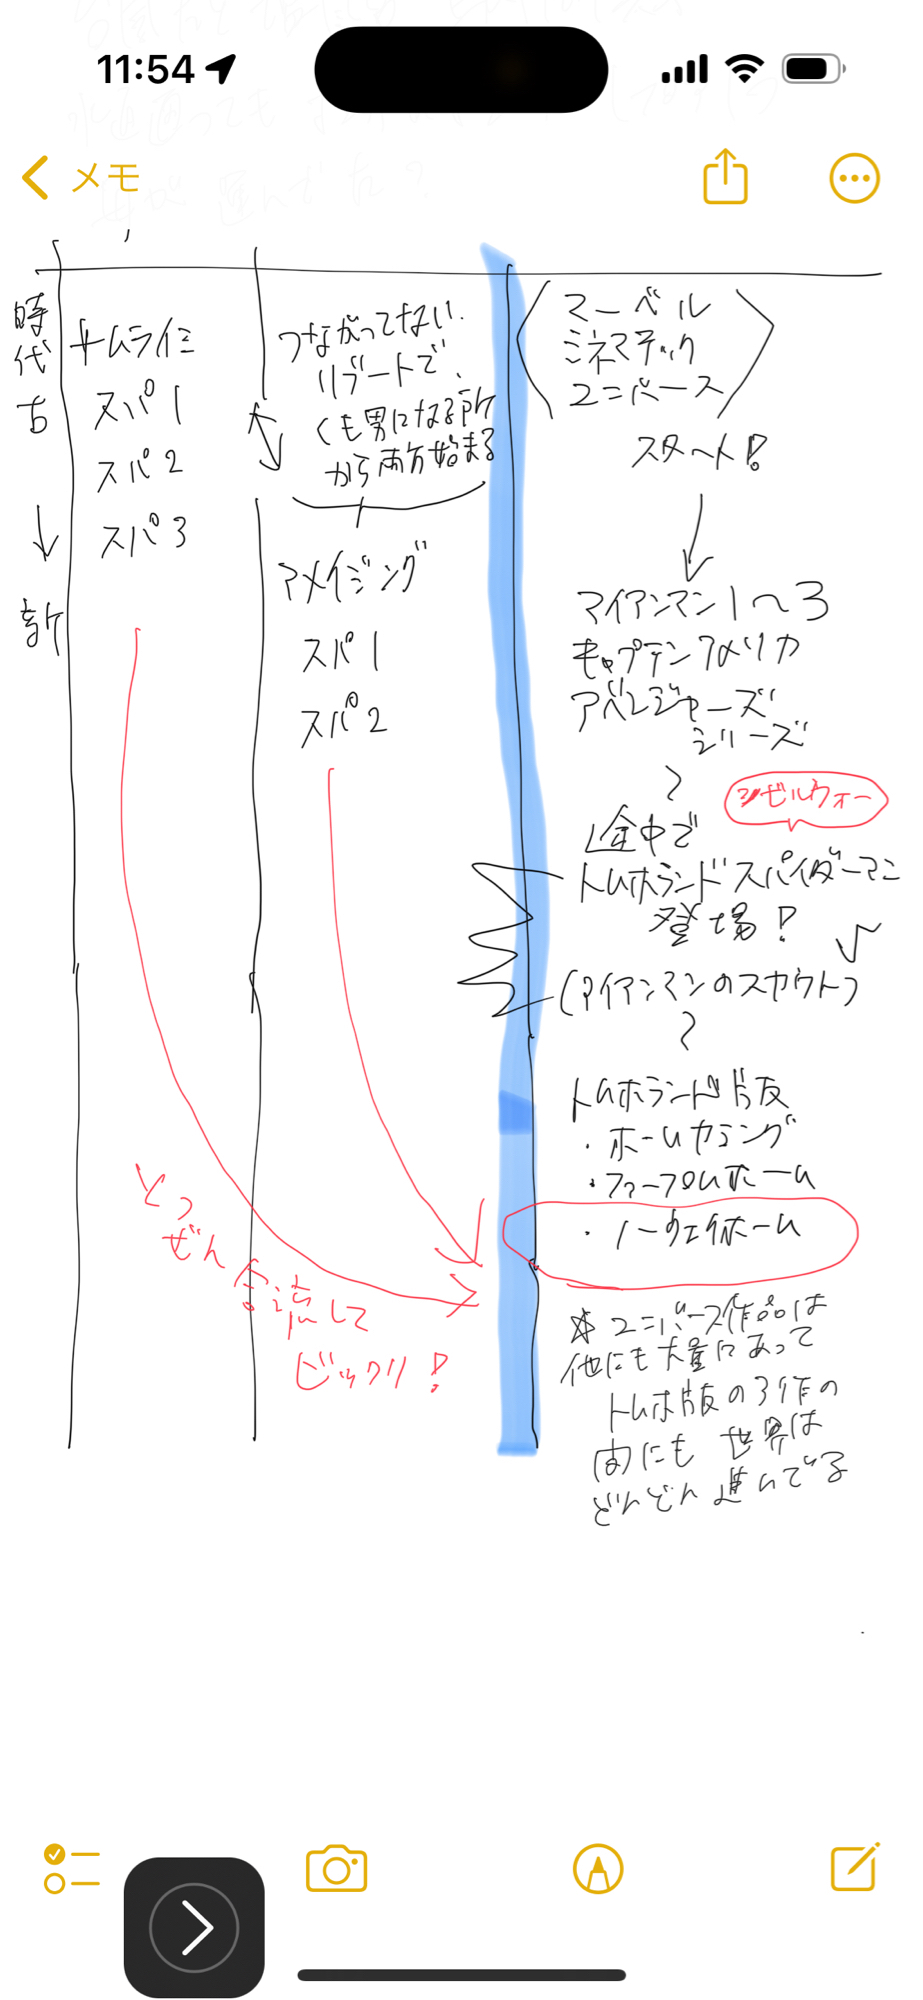 11:54
メモ
時代
古
↓
新
サムライミ
スパ1
スパ2
スパ3
つながってない.
リブートで、
くも男になる所
から両方始まる
アメイジング
スパ1
スパ2
マーベル
シネマティック
ユニバース
スタート!
マイアンマン1〜3
キャプテンアメリカ
アベンジャーズ
シリーズ
〜
シビルウォー
途中で
トムホランドスパイダーマン
登場!
(アイアンマンのスカウト)
〜
トムホランド版
・ホームカミング
・ファーフロムホーム
・ノーウェイホーム
とつ
ぜん合流して
ビックリ!
☆ユニバース作品は
他にも大量にあって
トムホ版の3作の
間にも世界は
どんどん進んでる